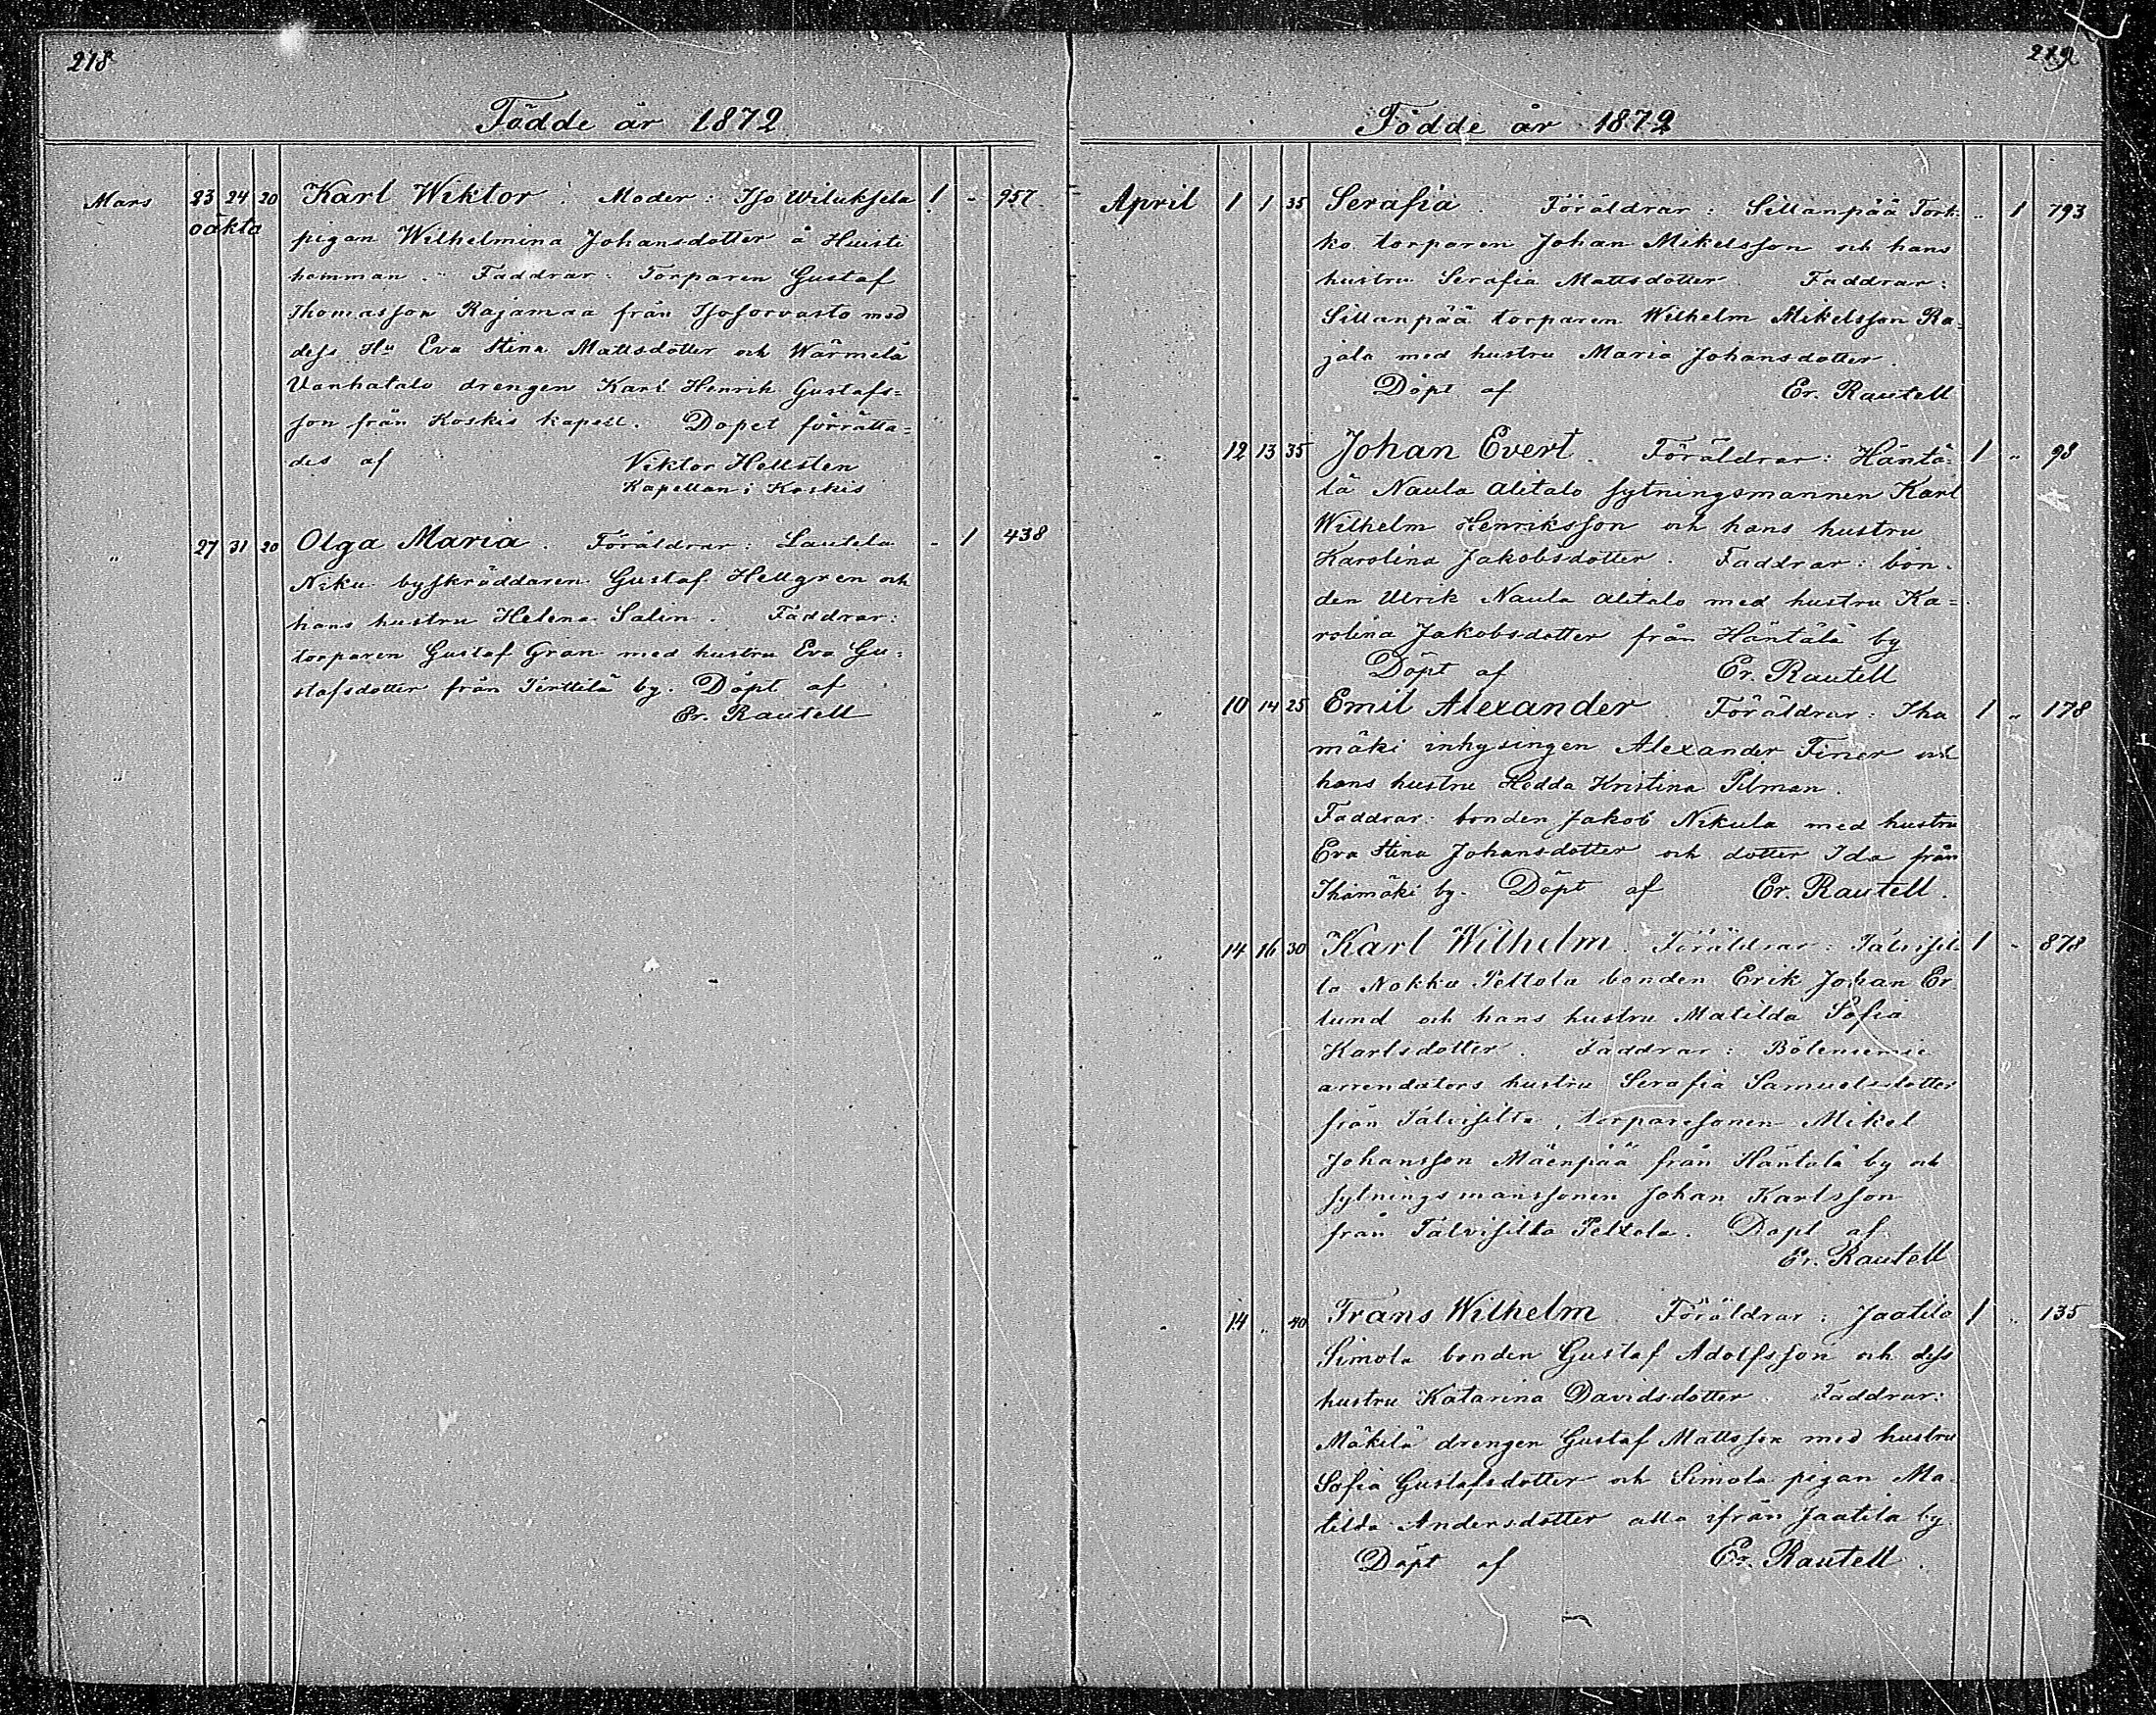 218
Födde år 1872
Mars 23 24 20 Karl Wiktor. Moder: Iso Wiluksela 1 " 957
oäkta pigan Wilhelmina Johansdotter å Huisti
hemman. Faddrar: Torparen Gustaf
Thomasson Rajamaa från Isosorvasto med
dess Hu Eva Stina Mattsdotter och Wärmelä
Vanhatalo drengen Karl Henrik Gustafs=
son från Koskis kapell. Dopet förrätta=
des af Viktor Hellsten
Kapellan i Koskis
" 27 31 20 Olga Maria. Föräldrar: Lautela " 1 438
Niku byskräddaren Gustaf Hellgren och
hans hustru Helena Salin. Faddrar:
torparen Gustaf Gran med hustru Eva Gu=
stafsdotter från Terttilä by. Döpt af
Er. Rautell
"
219
Födde år 1872
April 1 1 35 Serafia. Föräldrar: Sillanpää Tork= " 1 793
ko torparen Johan Mikelsson och hans
hustru Serafia Mattsdotter. Faddrar:
Sillanpää torparen Wilhelm Mikelsson Ra=
jala med hustru Maria Johansdotter.
Döpt af Er. Rautell
" 12 13 35 Johan Evert. Föräldrar: Häntä= 1 " 98
lä Naula Alitalo sytningsmannen Karl
Wilhelm Henriksson och hans hustru
Karolina Jakobsdotter. Faddrar: bon=
den Ulrik Naula Alitalo med hustru Ka=
rolina Jakobsdotter från Häntälä by
Döpt af Er. Rautell
" 10 14 25 Emil Alexander. Föräldrar: Iha 1 " 178
mäki inhysingen Alexander Finer och
hans hustru Hedda Kristina Pilman.
Faddrar: bonden Jakob Nikula med hustru
Eva Stina Johansdotter och dotter Ida från
Ihamäki by. Döpt af Er. Rautell.
" 14 16 30 Karl Wilhelm. Föräldrar: Talvisil 1 " 878
ta Nokka Peltola bonden Erik Johan Er
lund och hans hustru Matilda Sofia
Karlsdotter. Faddrar:
arrendators hustru Serafia Samuelsdotter
från Talvisilta, torparesonen Mikel
Johansson Mäenpää från Häntälä by och
sytningsmanssonen Johan Karlsson
från Talvisilta Peltola. Döpt af
Er. Rautell
" 14 " 40 Frans Wilhelm. Föräldrar: Jaatila 1 " 135
Simola bonden Gustaf Adolfsson och dess
hustru Katarina Davidsdotter. Faddrar:
Mäkilä drengen Gustaf Mattsson med hustru
Sofia Gustafsdotter och Simola pigan Ma
tilda Andersdotter alla ifrån Jaatila by.
Döpt af Er. Rautell.